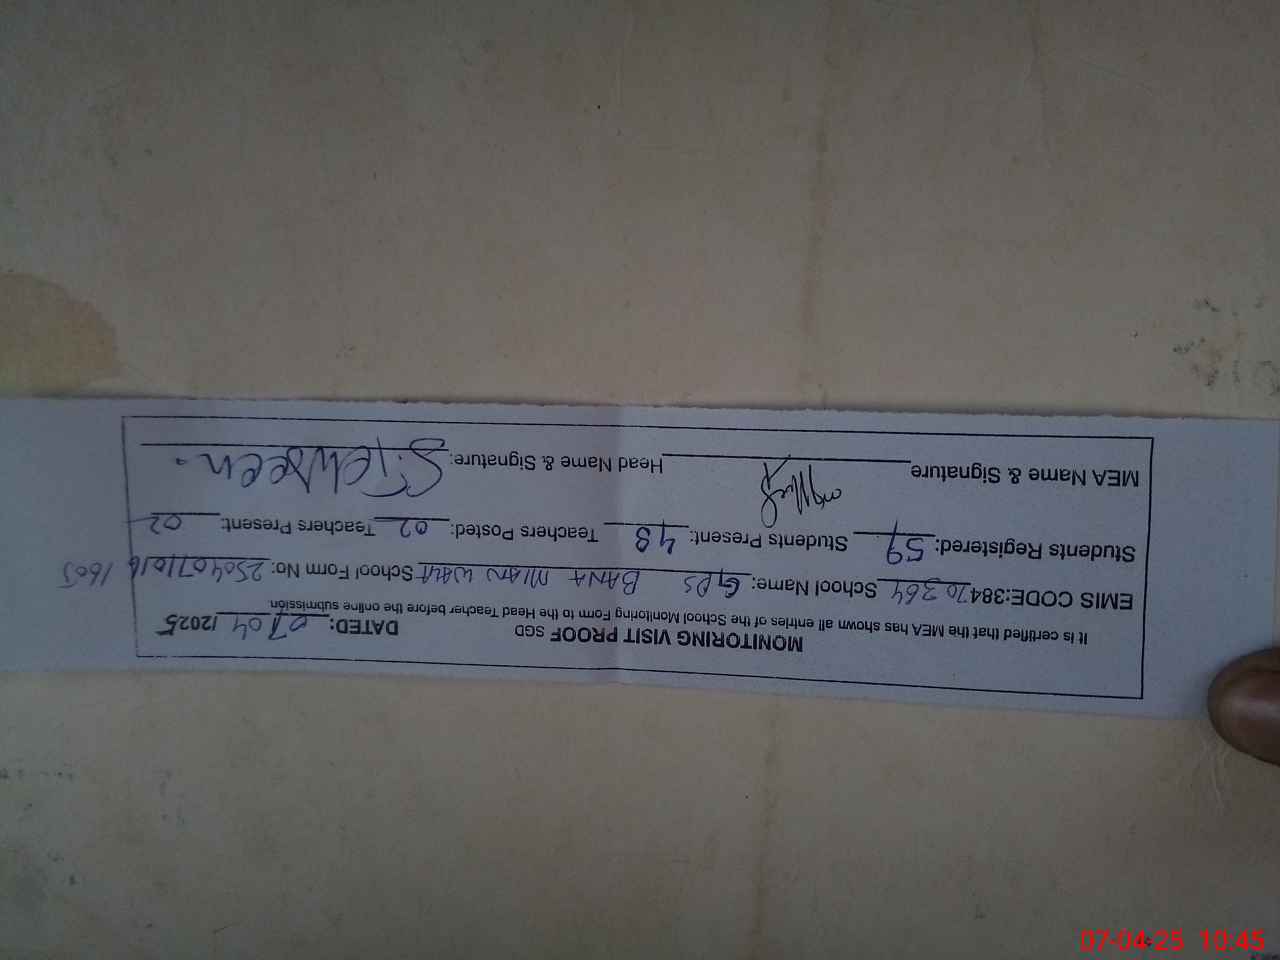 MONITORING VISIT PROOF SGD DATED: 07/04/2025
It is certified that the MEA has shown all entries of the School Monitoring Form to the Head Teacher before the online submission.
EMIS CODE:38470364 School Name: GPS BANA MIAN WALI School Form No: 2504071016 1605
Students Registered: 59 Students Present: 48 Teachers Posted: 02 Teachers Present: 02
MEA Name & Signature Head Name & Signature:
07-04-25 10:45